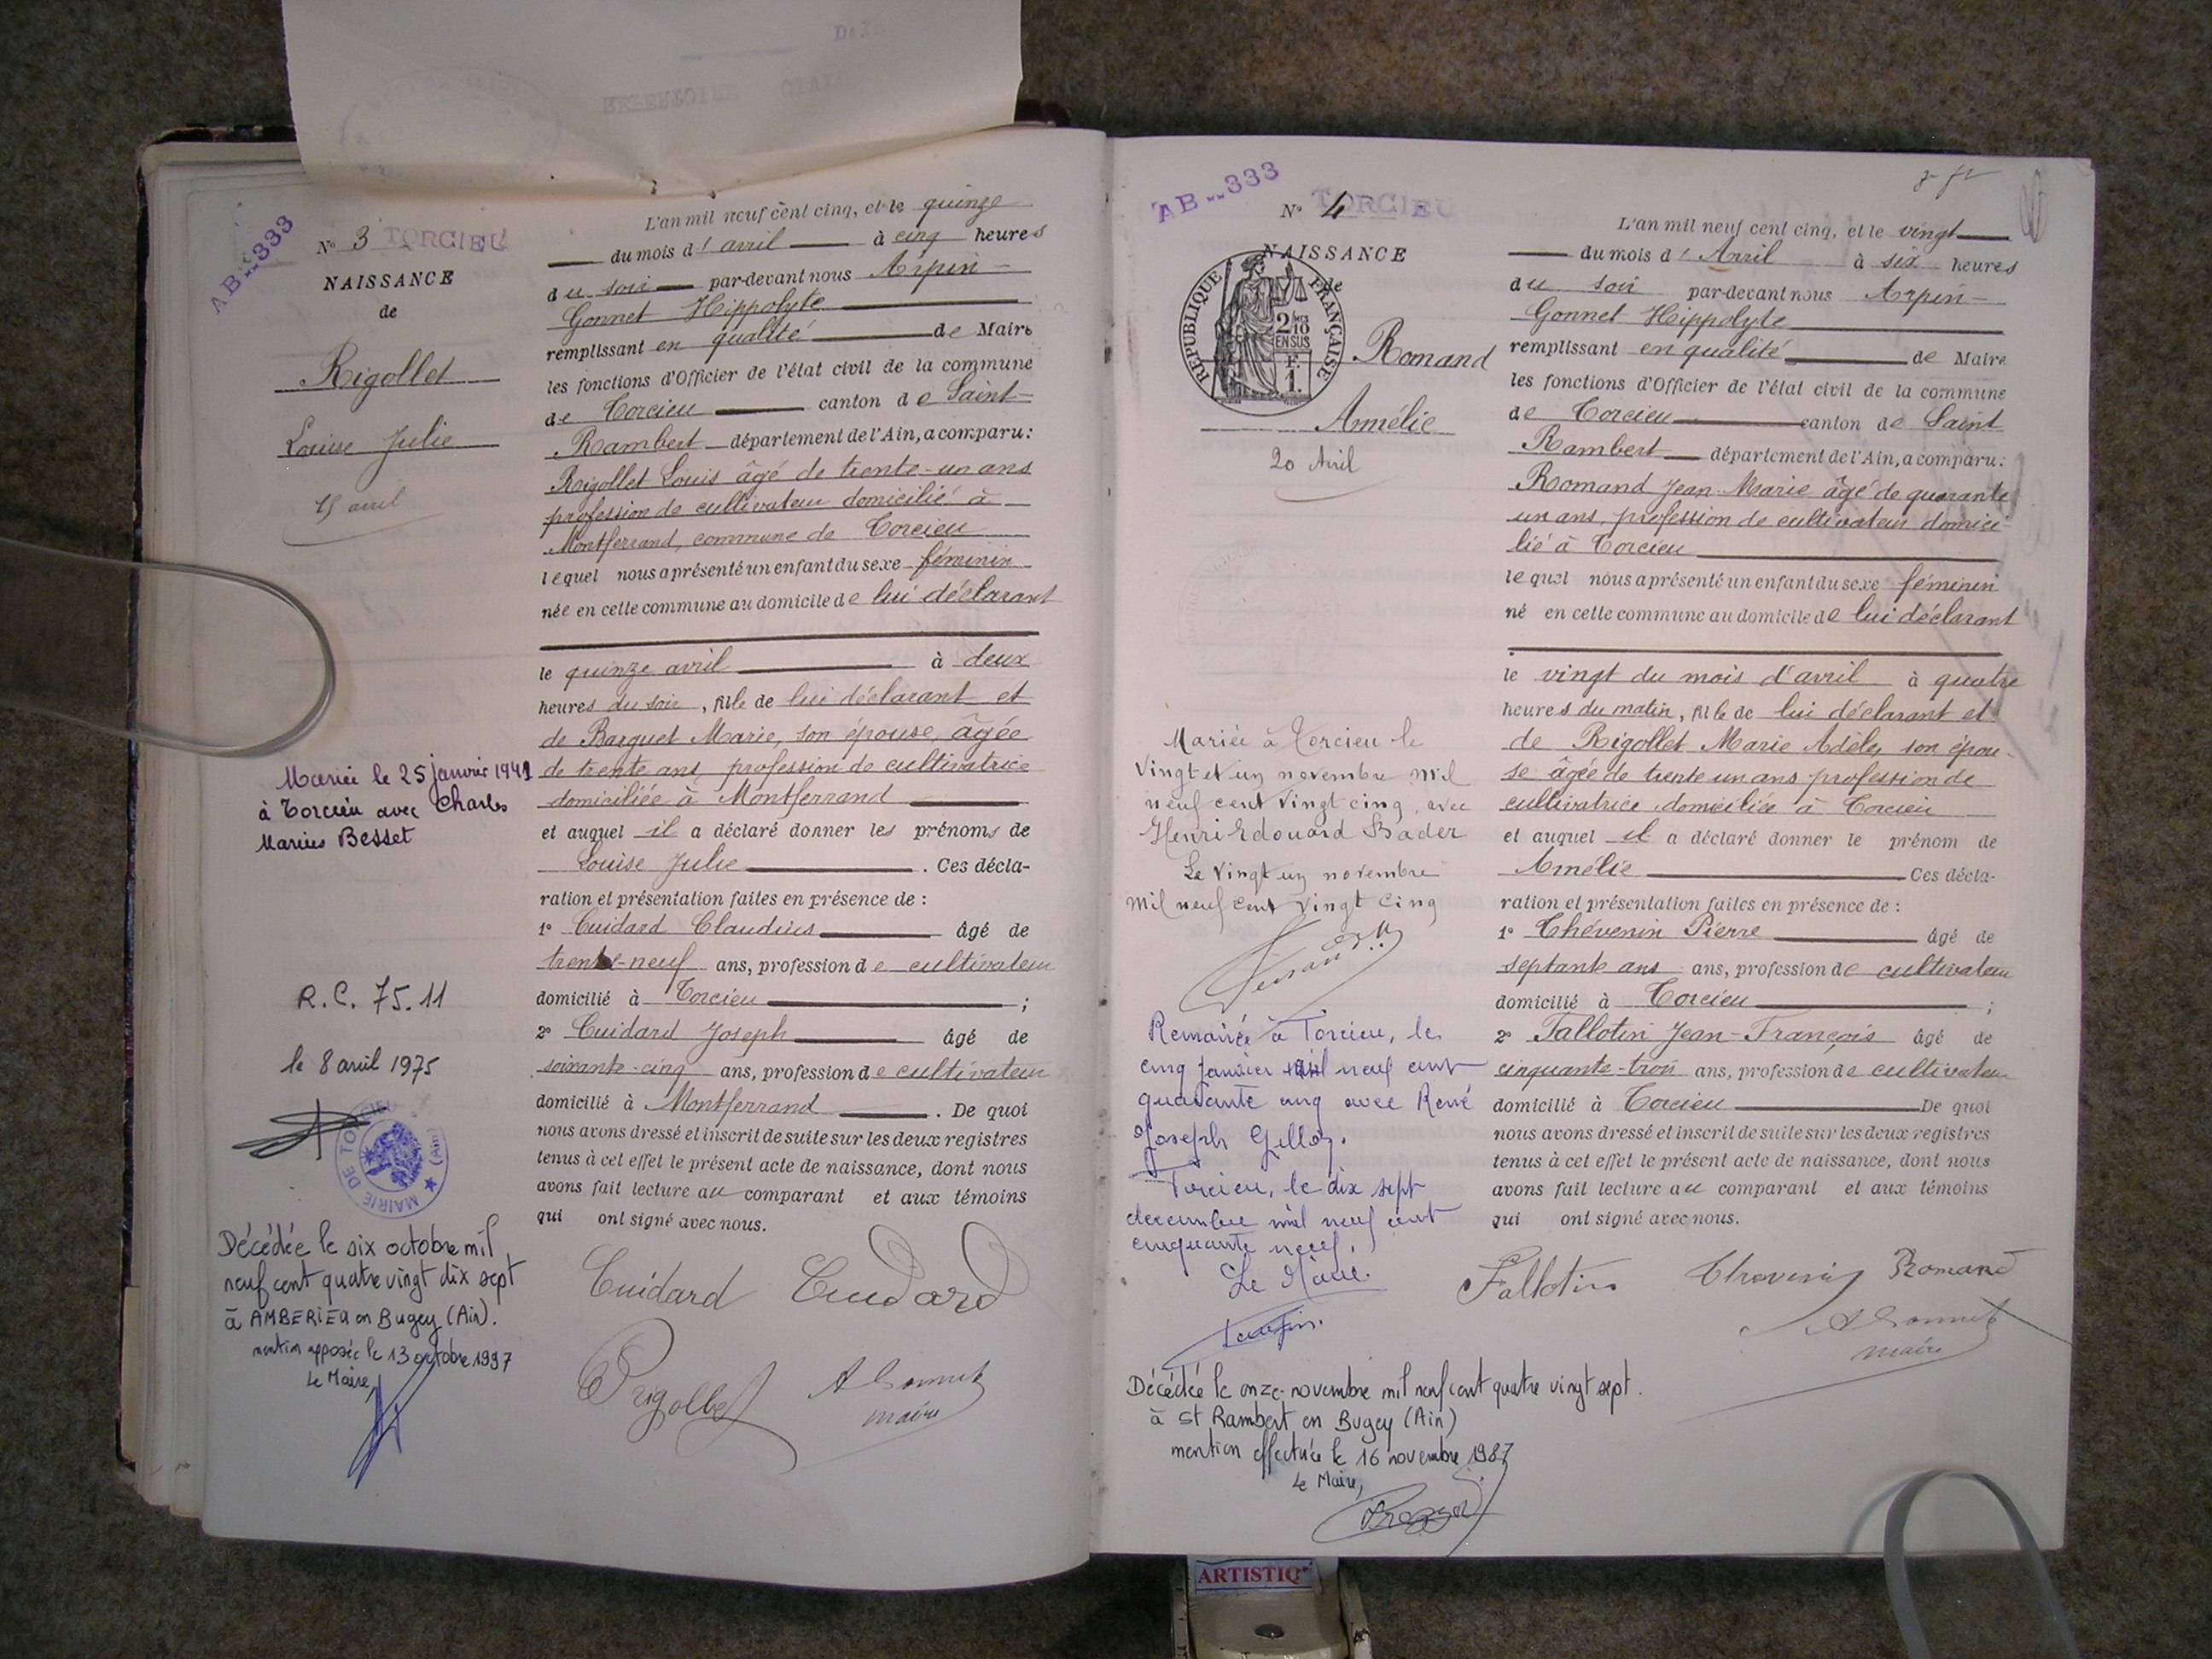 AB--333
N° 3 TORCIEU
NAISSANCE
de
Rigollet
Louise Julie
15 avril
L'an mil neuf cent cinq, et le quinze
du mois d'avril à cinq heures
du soir par-devant nous Arpin-
Gonnet Hippolyte
remplissant en qualité de Maire
les fonctions d'Officier de l'état civil de la commune
de Torcieu canton de Saint-
Rambert département de l'Ain, a comparu:
Rigollet Louis âgé de trente-un ans
profession de cultivateur domicilié à
Montferrand, commune de Torcieu
lequel nous a présenté un enfant du sexe féminin
née en cette commune au domicile de lui déclarant
le quinze avril à deux
heures du soir, fille de lui déclarant et
de Barquet Marie, son épouse, âgée
de trente ans, profession de cultivatrice
domiciliée à Montferrand
et auquel il a déclaré donner les prénoms de
Louise Julie. Ces décla-
ration et présentation faites en présence de :
1° Cuidard Claudius âgé de
trente-neuf ans, profession de cultivateur
domicilié à Torcieu ;
2° Cuidard Joseph âgé de
soixante-cinq ans, profession de cultivateur
domicilié à Montferrand. De quoi
nous avons dressé et inscrit de suite sur les deux registres
tenus à cet effet le présent acte de naissance, dont nous
avons fait lecture au comparant et aux témoins
qui ont signé avec nous.
Cuidard Cuidard
Rigollet A Gonnet
maire
Mariée le 25 janvier 1941
à Torcieu avec Charles
Marius Besset
R.C. 75.11
le 8 avril 1975
MAIRIE DE TORCIEU (Ain)
Décédée le six octobre mil
neuf cent quatre vingt dix sept
à AMBERIEU en Bugey (Ain).
mention apposée le 13 octobre 1997
Le Maire,
AB--333
N° 4 TORCIEU
NAISSANCE
de
REPUBLIQUE FRANÇAISE
2/10
EN SUS
F.
1.
Romand
Amélie
20 Avril
L'an mil neuf cent cinq, et le vingt
du mois d'Avril à six heures
du soir par-devant nous Arpin-
Gonnet Hippolyte
remplissant en qualité de Maire
les fonctions d'Officier de l'état civil de la commune
de Torcieu canton de Saint
Rambert département de l'Ain, a comparu:
Romand Jean-Marie âgé de quarante
un ans, profession de cultivateur domici-
lié à Torcieu
lequel nous a présenté un enfant du sexe féminin
né en cette commune au domicile de lui déclarant
le vingt du mois d'avril à quatre
heures du matin, fille de lui déclarant et
de Rigollet Marie Adèle, son épou-
se âgée de trente un ans profession de
cultivatrice domiciliée à Torcieu
et auquel il a déclaré donner le prénom de
Amélie Ces décla-
ration et présentation faites en présence de :
1° Thévenin Pierre âgé de
septante ans ans, profession de cultivateur
domicilié à Torcieu ;
2° Fallotin Jean-François âgé de
cinquante-trois ans, profession de cultivateur
domicilié à Torcieu De quoi
nous avons dressé et inscrit de suite sur les deux registres
tenus à cet effet le présent acte de naissance, dont nous
avons fait lecture au comparant et aux témoins
qui ont signé avec nous.
Fallotin Thevenin Romand
A Gonnet
maire
Mariée à Torcieu le
vingt et un novembre mil
neuf cent vingt cinq, avec
Henri Edouard Bader
Le vingt un novembre
mil neuf cent vingt cinq
Remariée à Torcieu, le
cinq janvier mil neuf cent
quarante cinq avec René
Joseph Gelloz.
Torcieu, le dix sept
décembre mil neuf cent
cinquante neuf.
Le Maire.
Décédée le onze novembre mil neuf cent quatre vingt sept.
à St Rambert en Bugey (Ain)
mention effectuée le 16 novembre 1987
Le Maire,
ARTISTIQ